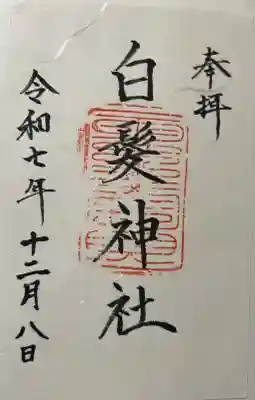 奉拝
白髮神社
令和七年十二月八日